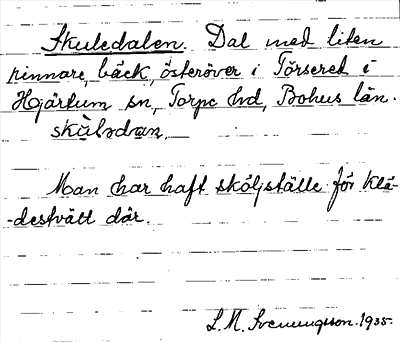 Skuledalen. Dal med liten
rinnare, bäck, österöver i Törsered i
Hjärtum sn, Torpe hd, Bohus län.
skùlədan,
Man har haft sköljställe för klä-
-destvätt där.
L. M. Svenungsson. 1935.